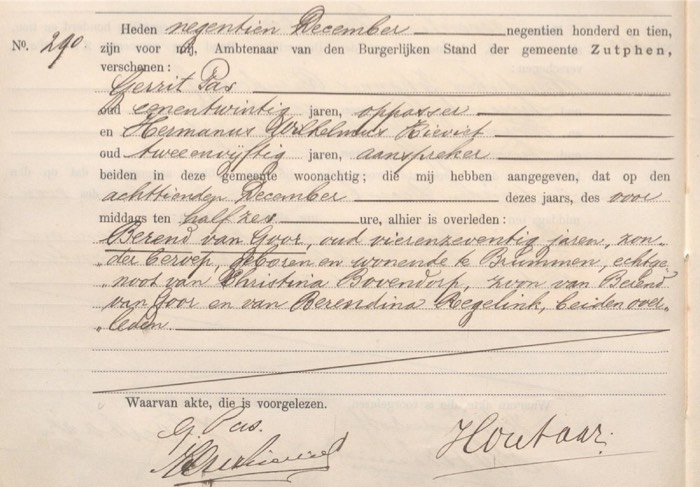 Heden negentien December negentien honderd en tien,
No. 290 zijn voor mij, Ambtenaar van den Burgerlijken Stand der gemeente Zutphen,
verschenen:
Gerrit Pas
oud eenentwintig jaren, oppasser
en Hermanus Wilhelmus Kievit
oud tweeenvijftig jaren, aanspreker
beiden in deze gemeente woonachtig; die mij hebben aangegeven, dat op den
achttienden December dezes jaars, des voor
middags ten half zes ure, alhier is overleden:
Berend van Goor, oud vierenzeventig jaren, zon-
„der beroep, geboren en wonende te Brummen, echtge-
„noot van Christina Bovendorp, zoon van Berend
van Goor en van Berendina Regelink, beiden over-
„leden.
Waarvan akte, die is voorgelezen.
G. Pas.
Houtaar.